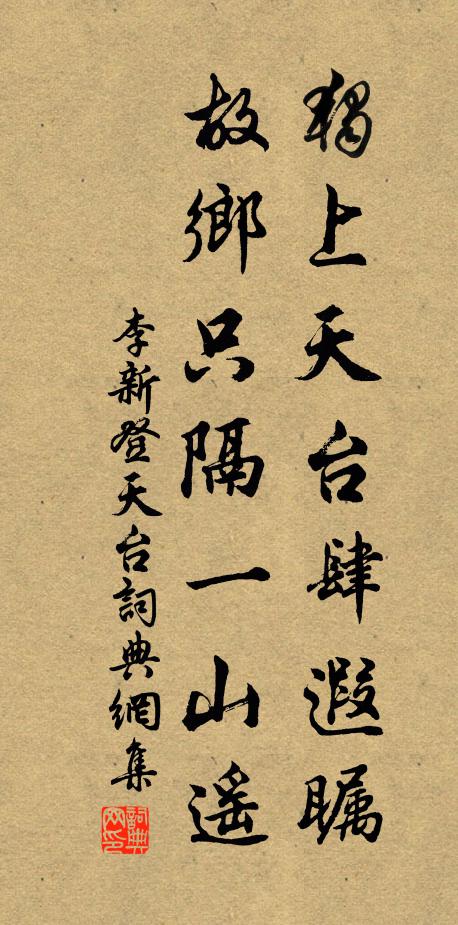 獨上天台肆遐瞩
故鄉只隔一山遥
李新登天台詞典網集
詞典网印